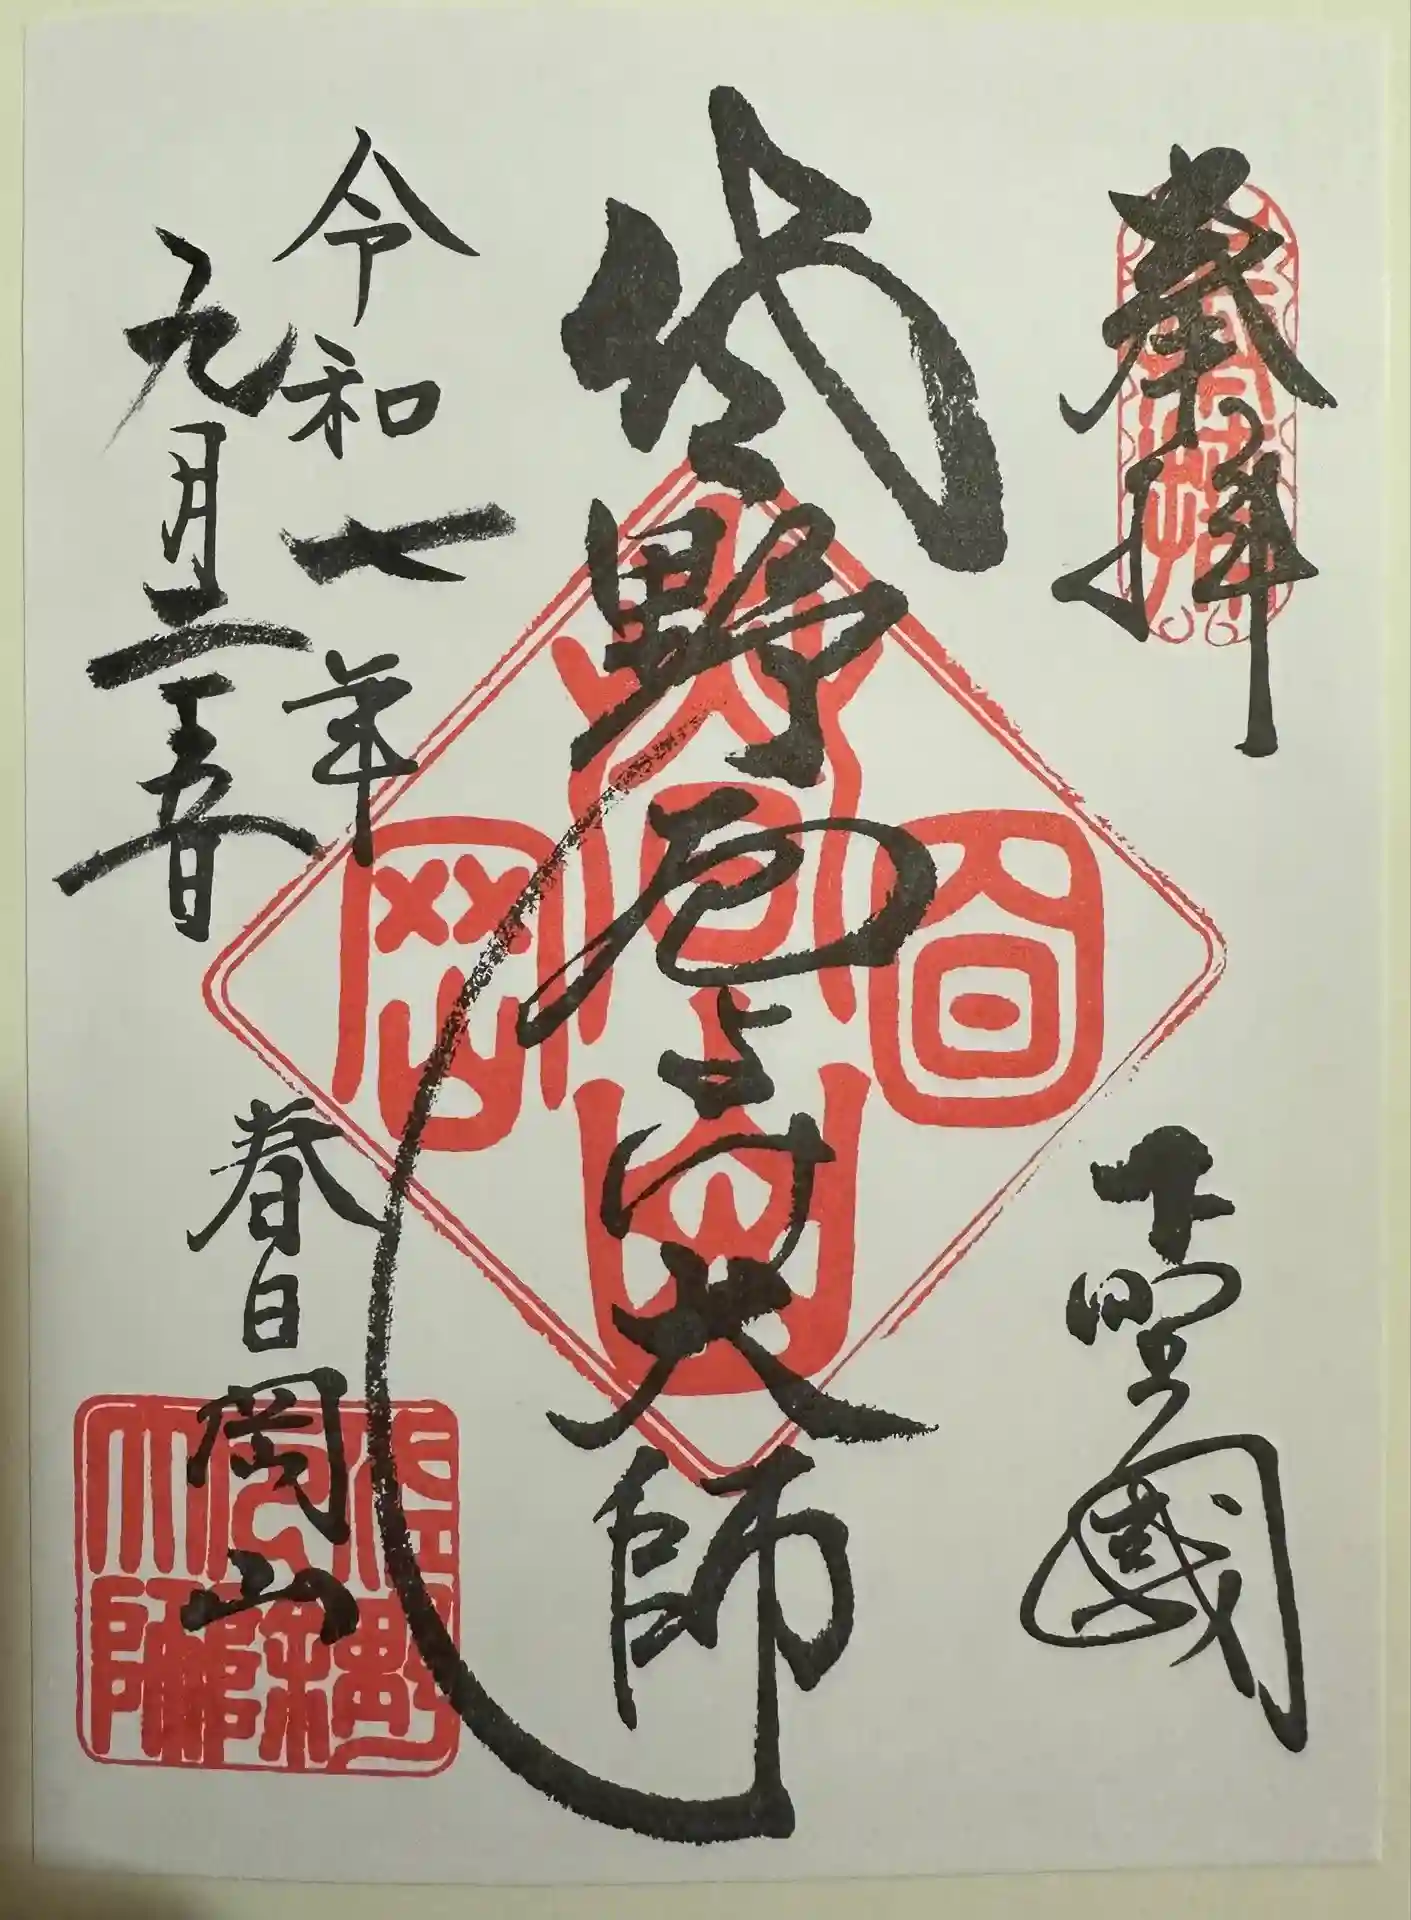 奉拝
下野國
佐野厄よけ大師
令和七年
九月二十五日
春日岡山